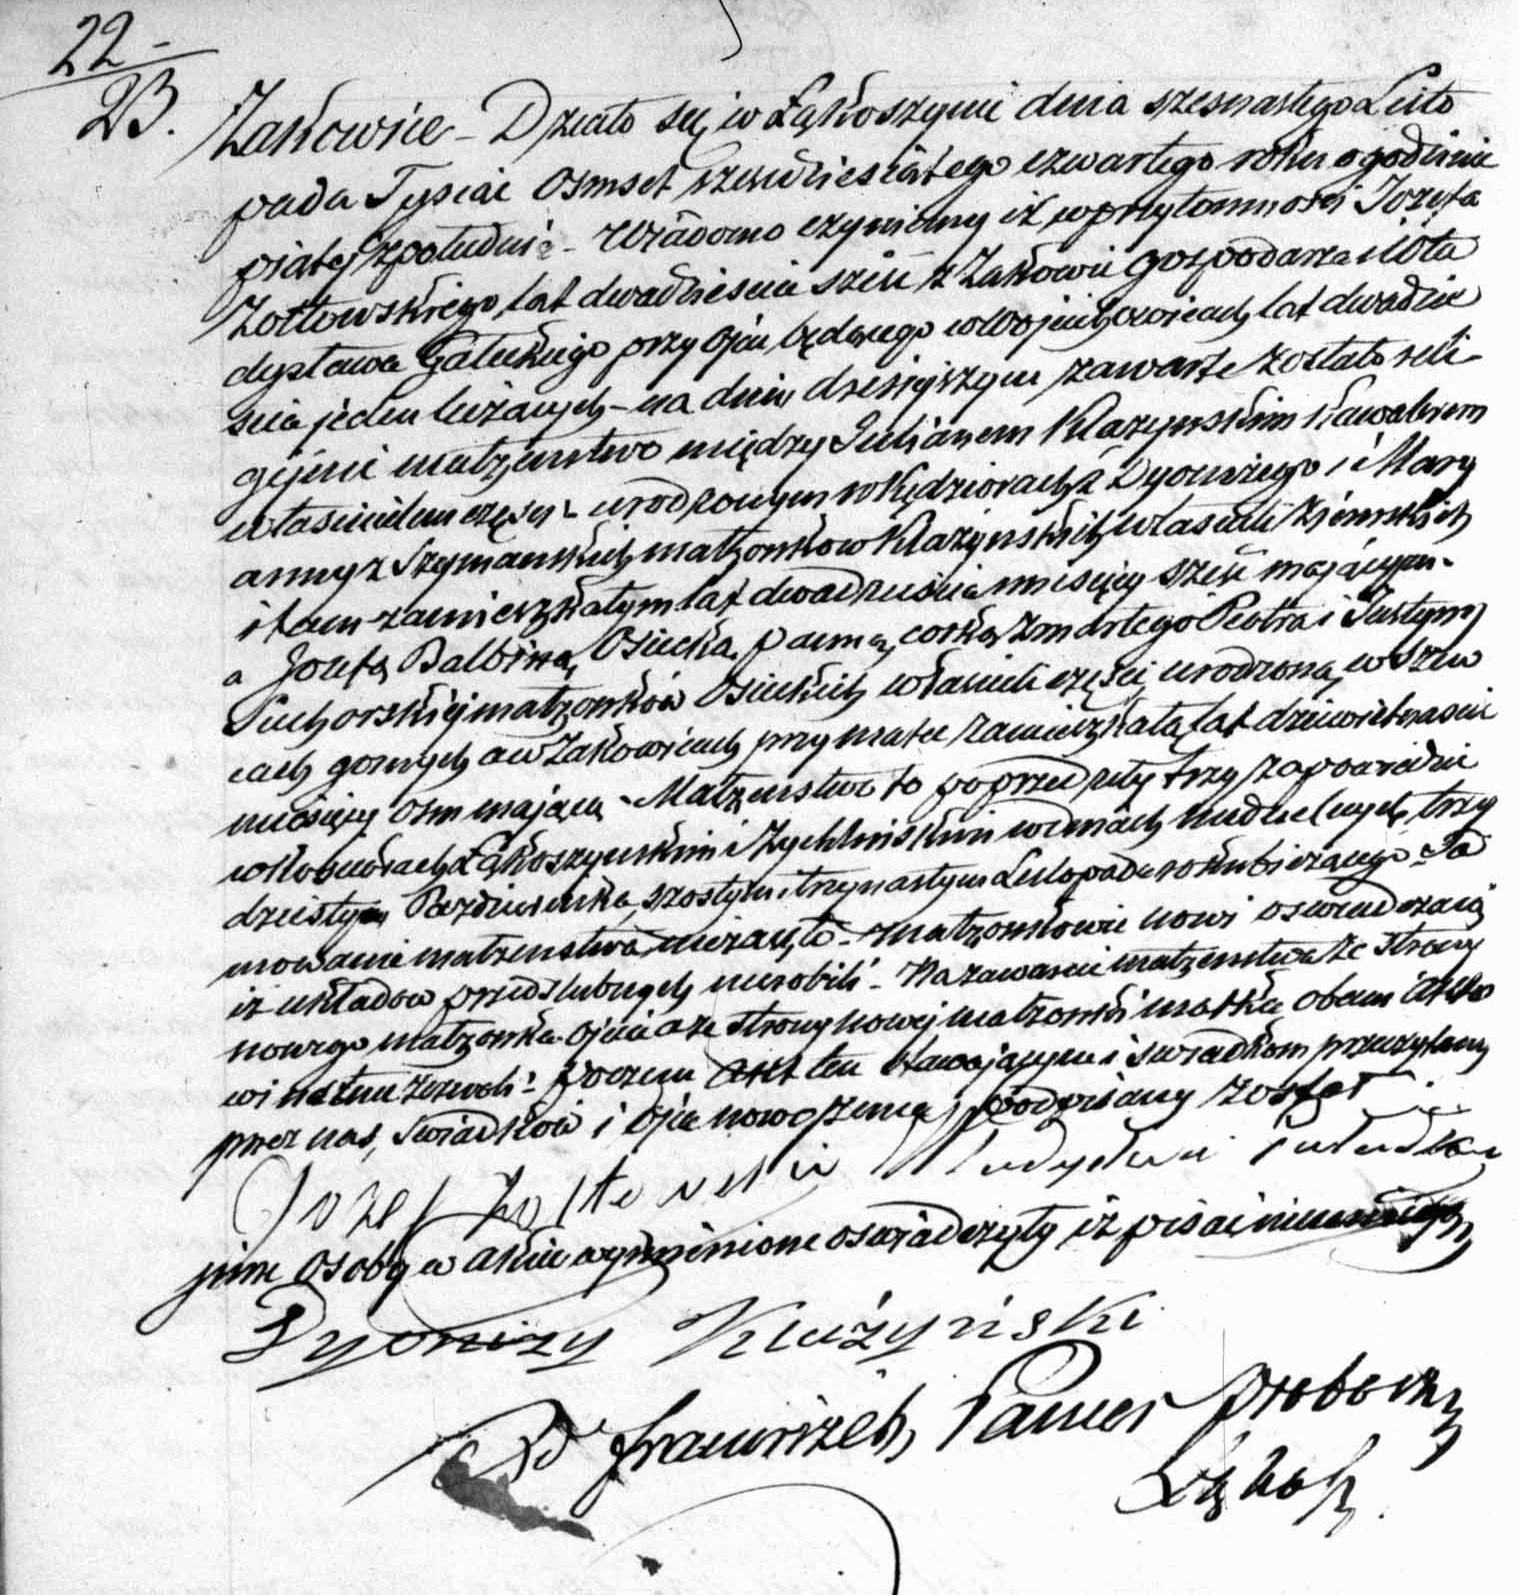 22 -
23.
Żakowice - Działo się w Łąkoszynie dnia szesnastego Listo
pada Tysiąc Osmset szesdziesiątego czwartego roku o godzinie
piątej z południa - Wiadomo czyniemy iż w przytomności Jozefa
Zołtowskiego lat dwadzieścia sześć z Żakowic gospodarza i Wła
dysława Gałeckiego przy Ojcu będącego w lat dwadzie
ścia jeden liczących - na dniu dzisiejszym zawarte zostało reli
gijne małżeństwo między Julianem Klażyńskim Kawalerem
właścicielem części urodzonym w Kędziorach z Dyonizego i Mary
anny z Szymańskich małżonków Klażyńskich właścicieli ziemskich
i tam zamieszkałym lat dwadzieścia miesięcy sześć mającym -
a Jozefą Balbiną Osiecką panną, corką zmarłego Piotra i Justyny
Suchorskiej małżonków Osieckich właścicieli części urodzoną w Szew
cach gornych a w Żakowicach przy matce zamieszkałą lat dziewiętnaście
miesięcy osm mającą - Małżeństwo to poprzedziły trzy zapowiedzie
w Kościołach Łąkoszyńskim i Żychlińskim w dniach niedzielnych trzy
dziestym Pazdziernika, szostym i trzynastym Listopada roku bieżącego - Ta
mowanie małżeństwa nie zaszło - małżonkowie nowi oswiadczają
iż układów przedslubnych nie robili - Na zawarcie małżeństwa ze strony
nowego małżonka ojciec a ze strony nowej małżonki matka obecni aktowi
zezwoli - poczem akt ten stawającym i swiadkom przeczytany
przez nas, swiadków i Ojca nowożenca podpisany został
Jozef Zołtowski Władysław
inne osoby w akcie wymienione oswiadczyły iż pisać nieumieją
Dyonizy Klużyński
Xd Franciszek Pamer proboszcz
Łąkosz.